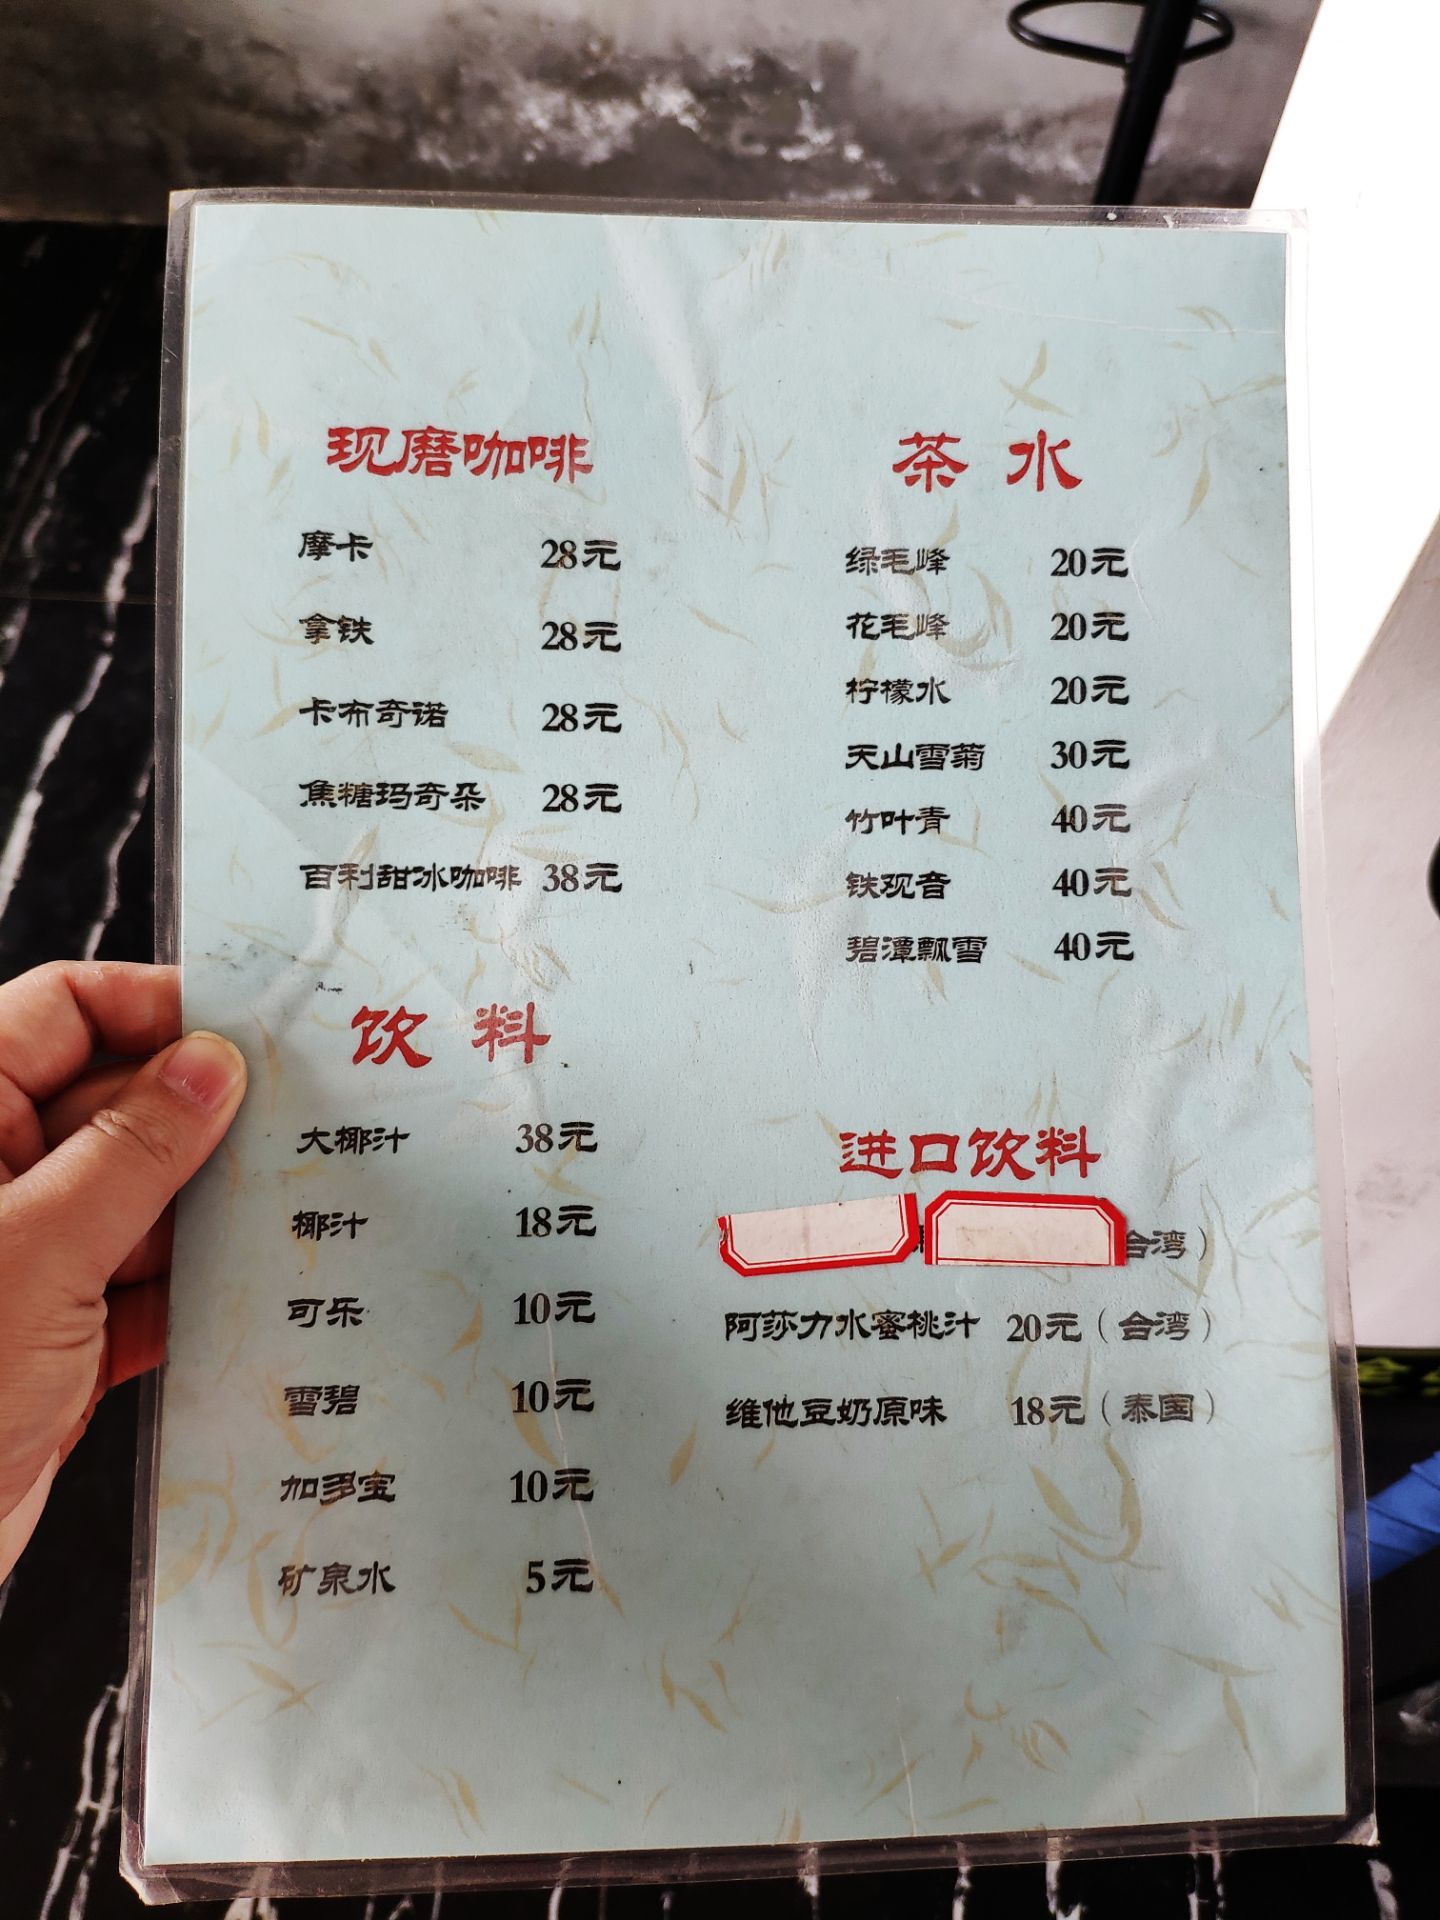 现磨咖啡
摩卡 28元
拿铁 28元
卡布奇诺 28元
焦糖玛奇朵 28元
百利甜冰咖啡 38元
饮料
大椰汁 38元
椰汁 18元
可乐 10元
雪碧 10元
加多宝 10元
矿泉水 5元
茶水
绿毛峰 20元
花毛峰 20元
柠檬水 20元
天山雪菊 30元
竹叶青 40元
铁观音 40元
碧潭飘雪 40元
进口饮料
台湾）
阿莎力水蜜桃汁 20元（台湾）
维他豆奶原味 18元（泰国）